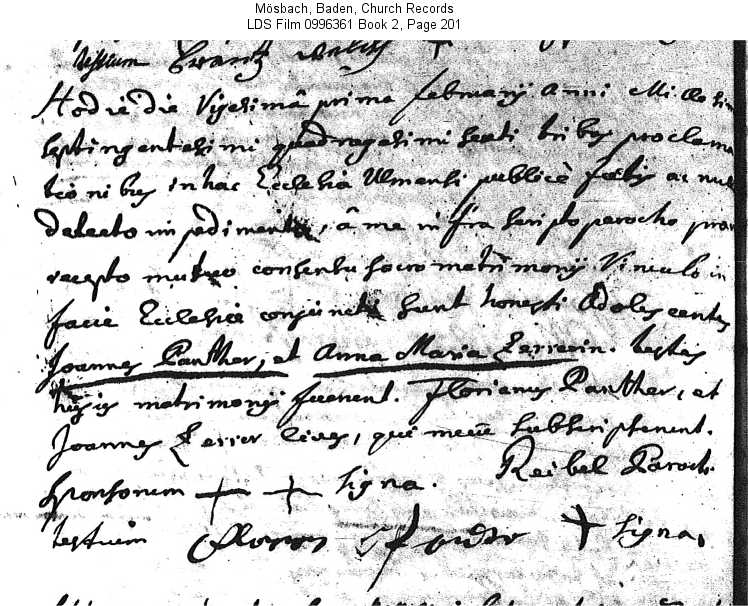 Mösbach, Baden, Church Records
LDS Film 0996361 Book 2, Page 201
testium Frantz
Hodie die Vigesimâ prima februarij Anni Millesimi
septingentesimi quadragesimi sexti tribus proclama
tionibus in hac Ecclesia Ulmensi publicè factis ac nullo
detecto impedimento, â me infra scripto parocho prae
recepto mutuo consensu sacro matrimonij Vinculo in
facie Ecclesiae conjuncti sunt honesti Adolescentes
Joannes Panther, et Anna Maria Zerrerin. testes
hujus matrimonij fuerunt. Florianus Panther, et
Joannes Zerrer cives, qui mecum subscripserunt.
Reibel Paroch
sponsorum + + signa.
testium Floron + signa,